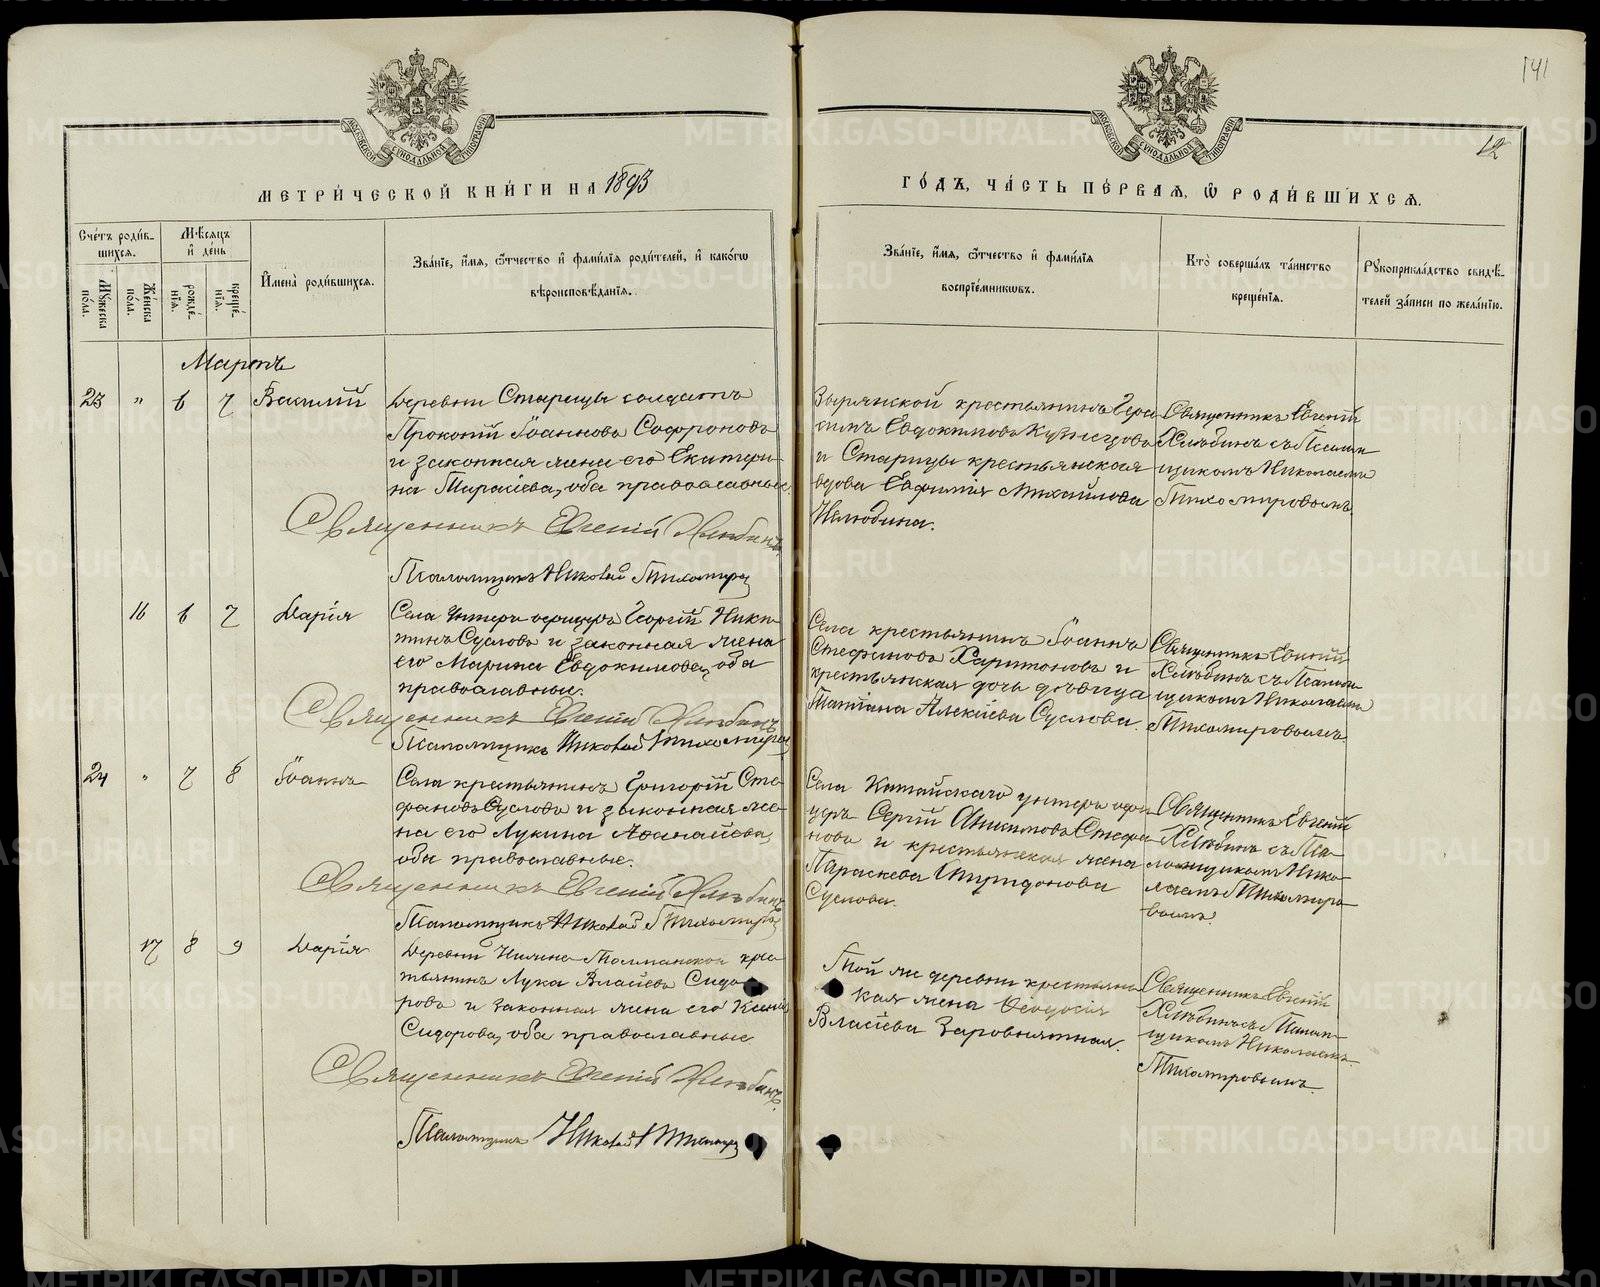 141
12
МЕТРИ́ЧЕСКОЙ КНИ́ГИ НА 1893
ГО́ДЪ, ЧА́СТЬ ПЕ́РВАЯ, Ѽ РОДИ́ВШИХСЯ.
Сче́тъ роди́в-
шихся.
Мꙋ́жеска по́ла.
Же́нска по́ла.
Мѣ́сяцъ
и҆ де́нь
рожде́-
нїя.
креще́-
нїя.
И҆мена̀ роди́вшихся.
Зва́нїе, и҆́мя, ѻ҆́тчество и҆ фами́лїя роди́телей, и҆ како́гѡ
вѣроисповѣ́данїя.
Зва́нїе, и҆́мя, ѻ҆́тчество и҆ фами́лїя
воспрїе́мникѡвъ.
Кто̀ соверша́лъ та́инство
креще́нїя.
Рꙋкоприкла́дство свидѣ́-
телей за́писи по жела́нїю.
Мартъ
23 " 6 7 Василій
Деревни Старицы солдатъ
Прокопій Іоанновъ Софроновъ
и законная жена его Екатери-
на Тарасіева, оба православные.
Священникъ Евгеній Хлѣбинъ.
Псаломщикъ Николай Тихомиров
Зырянской крестьянинъ Гера
симъ Евдокимовъ Кузнецовъ
и Старицы крестьянская
вдова Евфимія Михайлова
Нелюбина.
Священникъ Евгеній
Хлѣбинъ съ Псалом
щикомъ Николаемъ
Тихомировымъ.
16 6 7 Дарія
Села унтеръ офицеръ Георгій Ники-
тинъ Сусловъ и законная жена
его Марина Евдокимова, оба
православные.
Священникъ Евгеній Хлѣбинъ
Псаломщикъ Николай Тихомиров
Села крестьянинъ Іоаннъ
Стефановъ Харитоновъ и
крестьянская дочь дѣвица
Татіана Алексіева Суслова.
Священникъ Евгеній
Хлѣбинъ съ Псалом
щикомъ Николаемъ
Тихомировымъ.
24 " 7 8 Іоаннъ
Села крестьянинъ Григорій Сте-
фановъ Сусловъ и законная же-
на его Лукина Аѳанасіева,
оба православные.
Священникъ Евгеній Хлѣбинъ
Псаломщикъ Николай Тихомиров
Села Катайскаго унтеръ офи
церъ Сергій Анисимовъ Стефа
новъ и крестьянская жена
Параскева Спиридонова
Суслова.
Священникъ Евгеній
Хлѣбинъ съ Пса-
ломщикомъ Нико-
лаемъ Тихомиро-
вымъ.
17 8 9 Дарія
Деревни крес-
тьянинъ Лука Власіевъ Сидо
ровъ и законная жена его Ксенія
Сидорова, оба православные
Священникъ Евгеній Хлѣбинъ.
Псаломщикъ Николай Тихомиров
Той же деревни крестьянс
кая жена Ѳеодосія
Власіева Заровнятная.
Священникъ Евгеній
Хлѣбинъ съ Псалом-
щикомъ Николаемъ
Тихомировымъ
METRIKI.GASO-URAL.RU